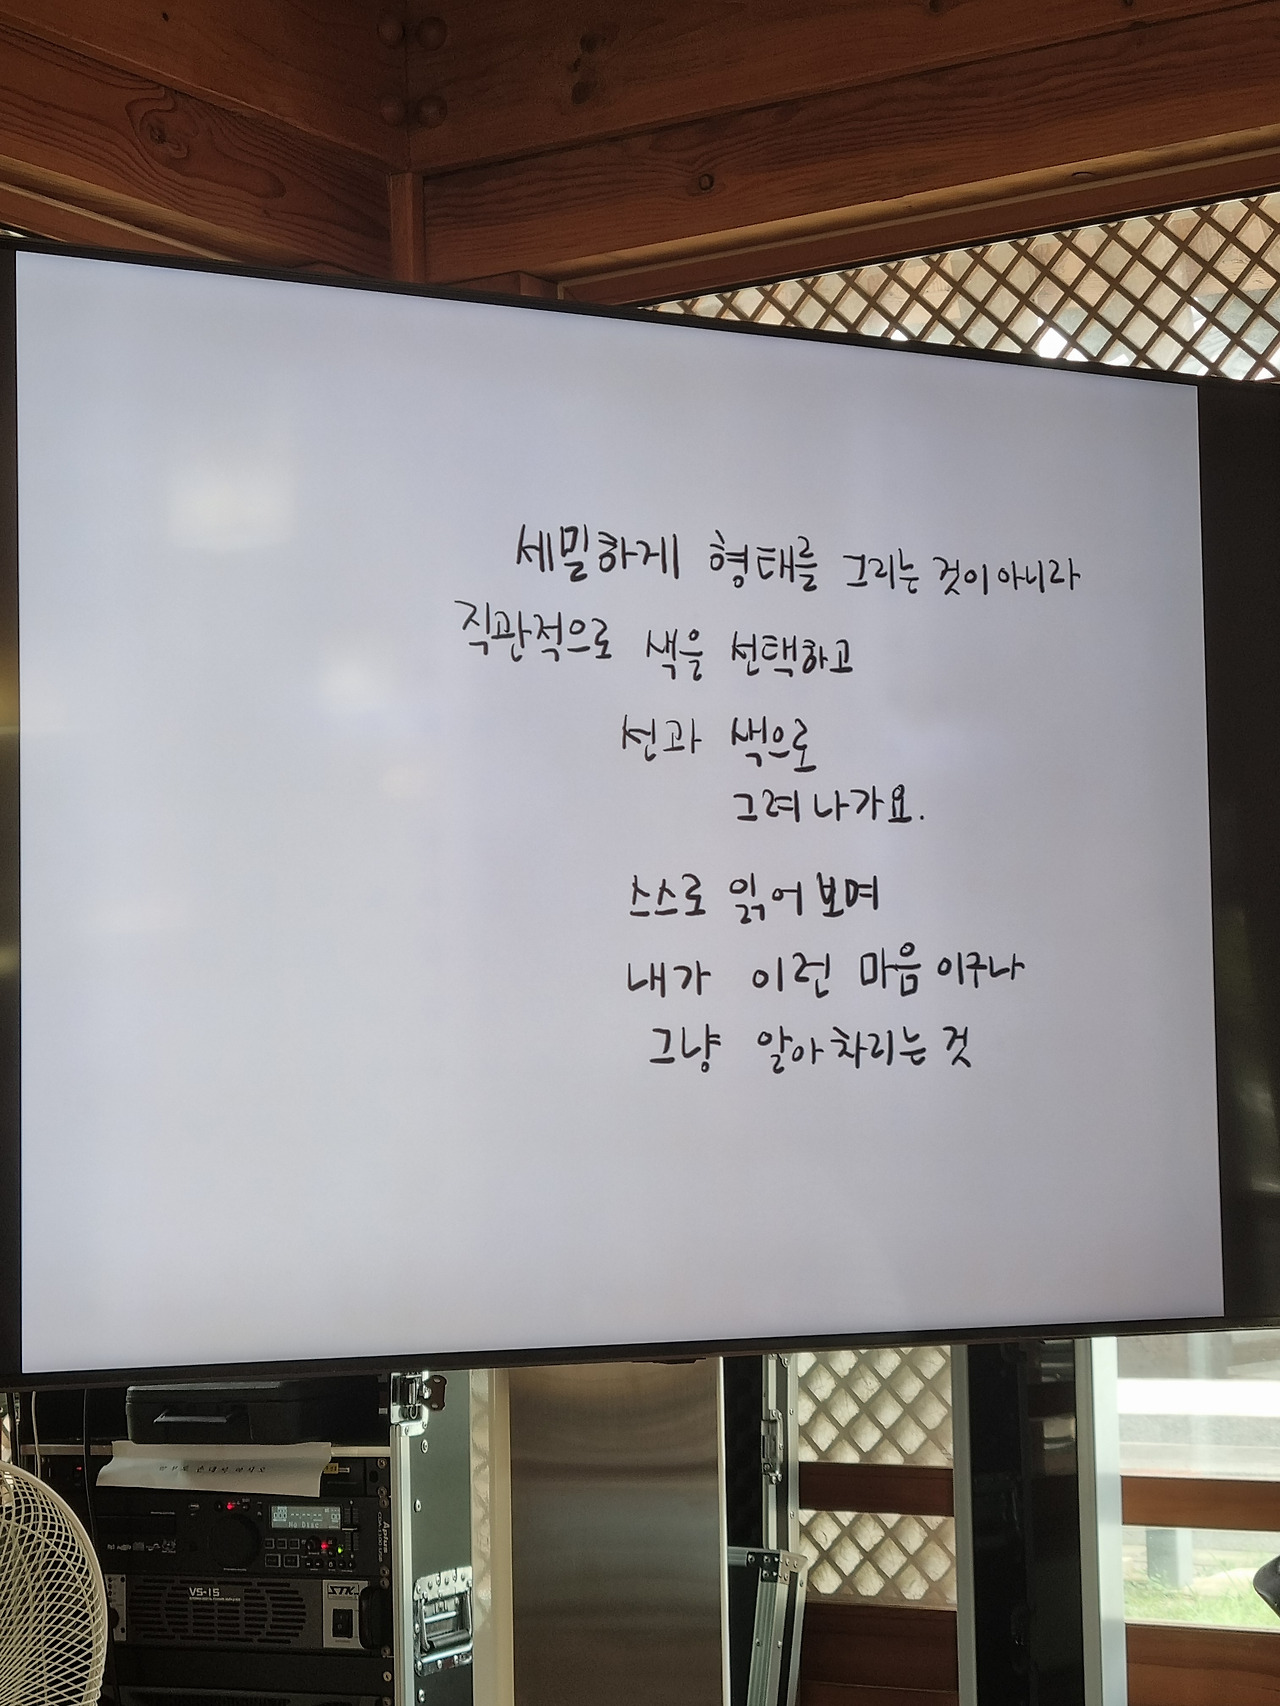 세밀하게 형태를 그리는 것이 아니라
직관적으로 색을 선택하고
선과 색으로
그려 나가요.
스스로 읽어 보며
내가 이런 마음이구나
그냥 알아차리는 것
No Disc
Aplus
VS-15
STK